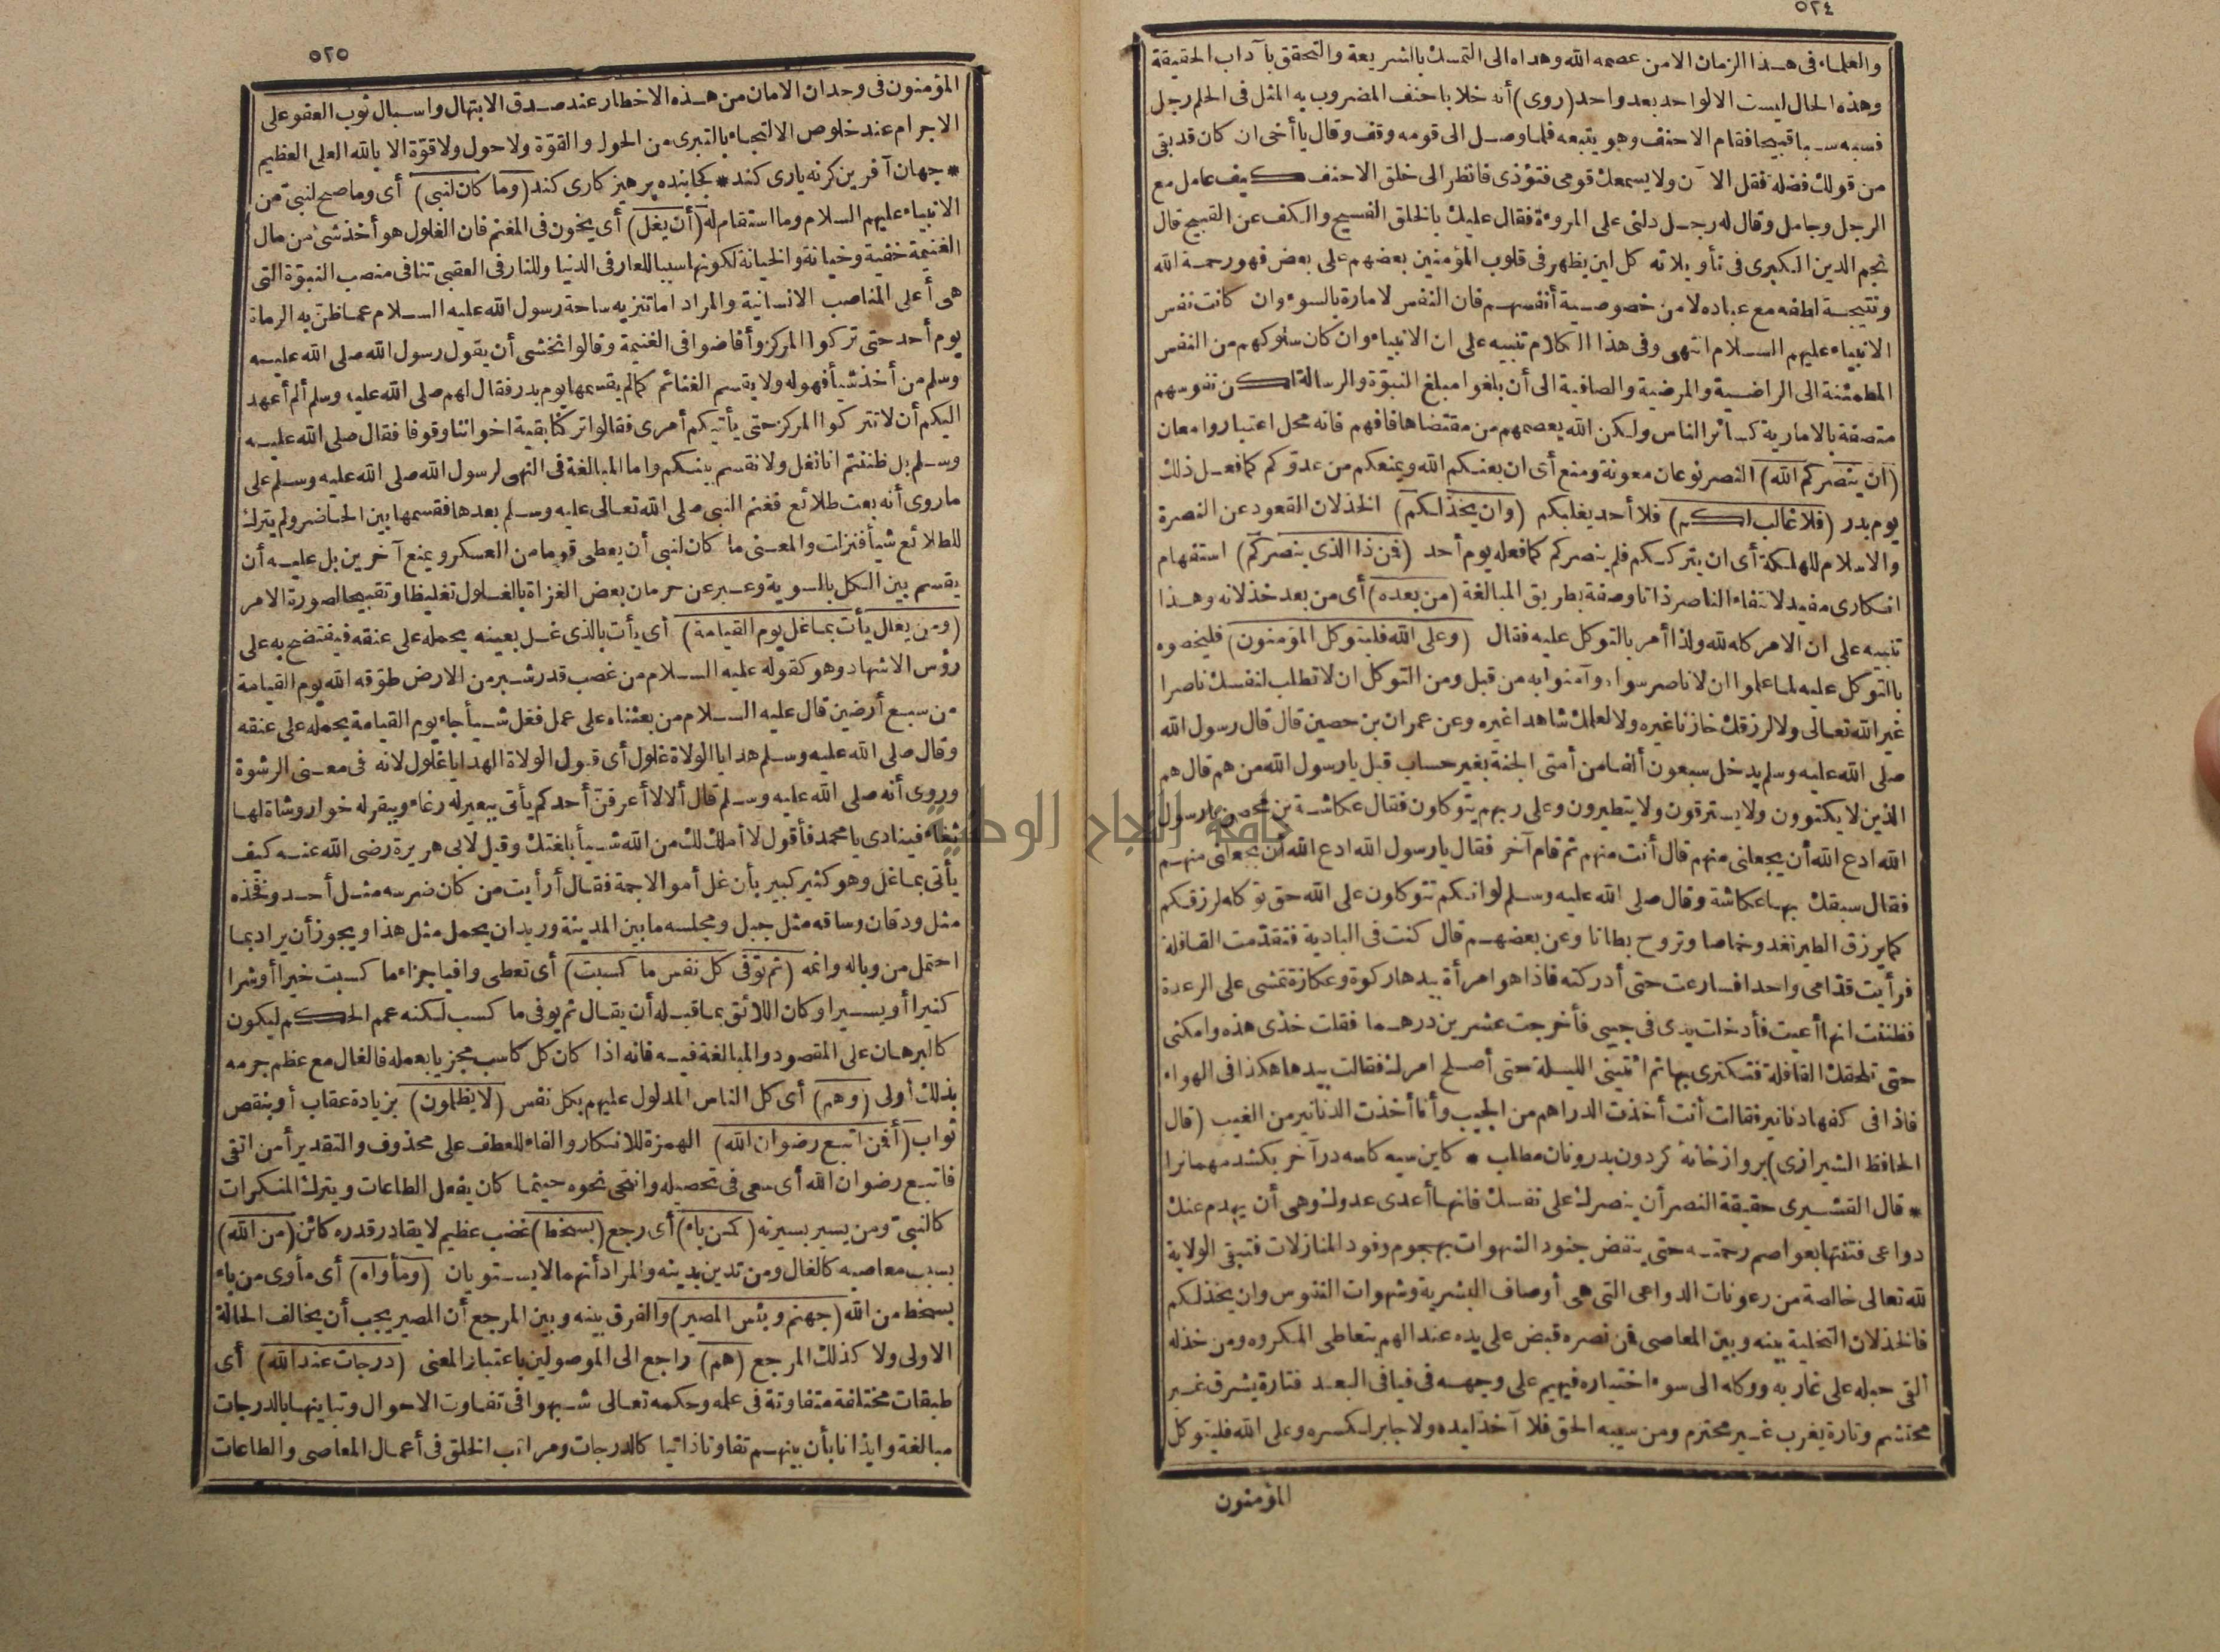 ٥٢٤
والعلماء فى هذا الزمان الا من عصمه الله وهداه الى التمسك بالشريعة والتحقق بآداب الحقيقة
وهذه الحال ليست الا لواحد بعد واحد (روى) أنه خلا باحنف المضروب به المثل فى الحلم رجل
فسبه سبا قبيحا فقام الاحنف وهو يتبعه فلما وصل الى قومه وقف وقال يا أخى ان كان قد بقى
من قولك فضلة فقل الآن ولا يسمعك قومى فتؤذى فانظر الى خلق الاحنف كيف عامل مع
الرجل وجامل وقال له رجل دلنى على المروءة فقال عليك بالخلق الفسيح والكف عن القبيح قال
نجم الدين الكبرى فى تأويلاته كل لين يظهر فى قلوب المؤمنين بعضهم على بعض فهو رحمة الله
ونتيجة لطفه مع عباده لا من خصوصية أنفسهم فان النفس لامارة بالسوء وان كانت نفس
الانبياء عليهم السلام انتهى وفى هذا الكلام تنبيه على ان الانبياء وان كان سلوكهم من النفس
المطمئنة الى الراضية والمرضية والصافية الى أن بلغوا مبلغ النبوة والرسالة لكن نفوسهم
متصفة بالامارية كسائر الناس ولكن الله يعصمهم من مقتضاها فافهم فانه محل اعتبار وامعان
(ان ينصركم الله) النصر نوعان معونة ومنع أى ان يعنكم الله ويمنعكم من عدوكم كما فعل ذلك
يوم بدر (فلا غالب لكم) فلا أحد يغلبكم (وان يخذلكم) الخذلان القعود عن النصرة
والاسلام للهلكة أى ان يترككم فلم ينصركم كما فعله يوم أحد (فمن ذا الذى ينصركم) استفهام
انكارى مفيد لانتفاء الناصر ذاتا وصفة بطريق المبالغة (من بعده) أى من بعد خذلانه وهذا
تنبيه على ان الامر كله لله ولذا أمر بالتوكل عليه فقال (وعلى الله فليتوكل المؤمنون) فليخصوه
بالتوكل عليه لما علموا ان لا ناصر سواه وآمنوا به من قبل ومن التوكل ان لا تطلب لنفسك ناصرا
غير الله تعالى ولا لرزقك خازنا غيره ولا لعملك شاهدا غيره وعن عمران بن حصين قال قال رسول الله
صلى الله عليه وسلم يدخل سبعون ألفا من أمتى الجنة بغير حساب قيل يا رسول الله من هم قال هم
الذين لا يكتوون ولا يسترقون ولا يتطيرون وعلى ربهم يتوكلون فقال عكاشة بن محصن يا رسول
الله ادع الله أن يجعلنى منهم قال أنت منهم ثم قام آخر فقال يا رسول الله ادع الله أن يجعلنى منهم
فقال سبقك بها عكاشة وقال صلى الله عليه وسلم لو انكم تتوكلون على الله حق توكله لرزقكم
كما يرزق الطير تغدو خماصا وتروح بطانا وعن بعضهم قال كنت فى البادية فتقدمت القافلة
فرأيت قدامى واحدا فسارعت حتى أدركته فاذا هو امرأة بيدها ركوة وعكازة تمشى على الرعدة
فظننت انها أعيت فأدخلت يدى فى جيبى فأخرجت عشرين درهما فقلت خذى هذه وامكثى
حتى تلحقك القافلة فتكترى بها ثم ائتينى الليلة حتى أصلح امرك فقالت بيدها هكذا فى الهواء
فاذا فى كفها دنانير فقالت أنت أخذت الدراهم من الجيب وأنا أخذت الدنانير من الغيب (قال
الحافظ الشيرازى) برو از خانهٔ كردون بدر ونان مطلب * كاين سيه كاسه در آخر بكشد مهمانرا
* قال القشيرى حقيقة النصر أن ينصرك على نفسك فانها أعدى عدوك وهى أن يهدم عنك
دواعى فتنتها بعواصم رحمته حتى ينفض جنود الشهوات بهجوم وفود المنازلات فتبقى الولاية
لله تعالى خالصة من رعونات الدواعى التى هى أوصاف البشرية وشهوات النفوس وان يخذلكم
فالخذلان التخلية بينه وبين المعاصى فمن نصره قبض على يده عند الهم بتعاطى المكروه ومن خذله
ألقى حبله على غاربه ووكله الى سوء اختياره فيهيم على وجهه فى فيافى البعد فتارة يشرق غير
محتشم وتارة يغرب غير محترم ومن سيبه الحق فلا آخذ ليده ولا جابر لكسره وعلى الله فليتوكل
المؤمنون
٥٢٥
المؤمنون فى وجدان الامان من هذه الاخطار عند صدق الابتهال واسبال ثوب العفو على
الاجرام عند خلوص الالتجاء بالتبرى من الحول والقوة ولا حول ولا قوة الا بالله العلى العظيم
* جهان آفرين كرنه يارى كند * كجا بنده پرهيز كارى كند (وما كان لنبى) أى وما صح لنبى من
الانبياء عليهم السلام وما استقام له (أن يغل) أى يخون فى المغنم فان الغلول هو أخذ شئ من مال
الغنيمة خفية وخيانة والخيانة لكونها سببا للعار فى الدنيا وللنار فى العقبى تنافى منصب النبوة التى
هى أعلى المناصب الانسانية والمراد اما تنزيه ساحة رسول الله عليه السلام عما ظن به الرماة
يوم أحد حتى تركوا المركز وأفاضوا فى الغنيمة وقالوا نخشى أن يقول رسول الله صلى الله عليه
وسلم من أخذ شيأ فهو له ولا يقسم الغنائم كما لم يقسمها يوم بدر فقال لهم صلى الله عليه وسلم ألم أعهد
اليكم أن لا تتركوا المركز حتى يأتيكم أمرى فقالوا تركنا بقية اخواننا وقوفا فقال صلى الله عليه
وسلم بل ظننتم انا نغل ولا نقسم بينكم واما المبالغة فى النهى لرسول الله صلى الله عليه وسلم على
ما روى أنه بعث طلائع فغنم النبى صلى الله تعالى عليه وسلم بعدها فقسمها بين الحاضر ولم يترك
للطلائع شيأ فنزلت والمعنى ما كان لنبى أن يعطى قوما من العسكر ويمنع آخرين بل عليه أن
يقسم بين الكل بالسوية وعبر عن حرمان بعض الغزاة بالغلول تغليظا وتقبيحا لصورة الامر
(ومن يغلل يأت بما غل يوم القيامة) أى يأت بالذى غل بعينه يحمله على عنقه فيفتضح به على
رؤس الاشهاد وهو كقوله عليه السلام من غصب قدر شبر من الارض طوقه الله يوم القيامة
من سبع أرضين قال عليه السلام من بعثناه على عمل فغل شيأ جاء يوم القيامة يحمله على عنقه
وقال صلى الله عليه وسلم هدايا الولاة غلول أى قبول الولاة الهدايا غلول لانه فى معنى الرشوة
وروى أنه صلى الله عليه وسلم قال ألا لا أعرفن أحدكم يأتى ببعير له رغاء وببقر له خوار وشاة لها
ثغاء فينادى يا محمد فأقول لا أملك لك من الله شيأ بلغتك وقيل لابى هريرة رضى الله عنه كيف
يأتى بما غل وهو كثير كبير بأن غل أموالا جمة فقال أرأيت من كان ضرسه مثل أحد وفخذه
مثل ودقان وساقه مثل جبل ومجلسه ما بين المدينة وريدان يحمل مثل هذا ويجوز أن يراد بما
احتمل من وباله واثمه (ثم توفى كل نفس ما كسبت) أى تعطى وافيا جزاء ما كسبت خيرا أو شرا
كثيرا أو يسيرا وكان اللائق بما قبله أن يقال ثم يوفى ما كسب لكنه عمم الحكم ليكون
كالبرهان على المقصود والمبالغة فيه فانه اذا كان كل كاسب مجزيا بعمله فالغال مع عظم جرمه
بذلك أولى (وهم) أى كل الناس المدلول عليهم بكل نفس (لا يظلمون) بزيادة عقاب أو بنقص
ثواب (أفمن اتبع رضوان الله) الهمزة للانكار والفاء للعطف على محذوف والتقدير أمن اتقى
فاتبع رضوان الله أى سعى فى تحصيله وانتحى نحوه حيثما كان بفعل الطاعات وبترك المنكرات
كالنبى ومن يسير بسيرته (كمن باء) أى رجع (بسخط) غضب عظيم لا يقادر قدره كائن (من الله)
بسبب معاصيه كالغال ومن تدين بدينه والمراد أنهما لا يستويان (ومأواه) أى مأوى من باء
بسخط من الله (جهنم وبئس المصير) والفرق بينه وبين المرجع أن المصير يجب أن يخالف الحالة
الاولى ولا كذلك المرجع (هم) راجع الى الموصولين باعتبار المعنى (درجات عند الله) أى
طبقات مختلفة متفاوتة فى علمه وحكمه تعالى شبهوا فى تفاوت الاحوال وتباينها بالدرجات
مبالغة وايذانا بأن بينهم تفاوتا ذاتيا كالدرجات ومراتب الخلق فى أعمال المعاصى والطاعات
جامعة النجاح الوطنية